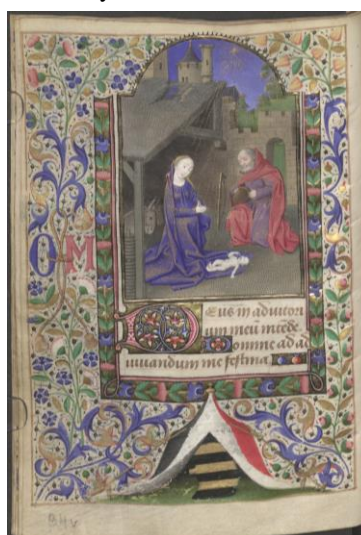 O M S
Deus in adiutor
ium meū intēde.
Domine ad ad
iuuandum me festina
94v